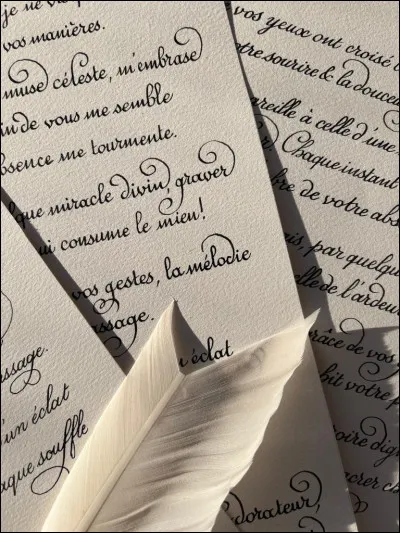 je ne
vos manières.
muse céleste, m'embrase
de vous me semble
absence me tourmente.
que miracle divin, graver
ui consume le mien!
vos gestes, la mélodie
ssage.
éclat
vos yeux ont croisé
tre sourire & la douceur
areille à celle d'une
Chaque instant
bre de votre abs
is, par quelque
elle de l'ardeur
râce de vos
votre
oire dign
crer
ssage.
'un éclat
aque souffle
dorateur,